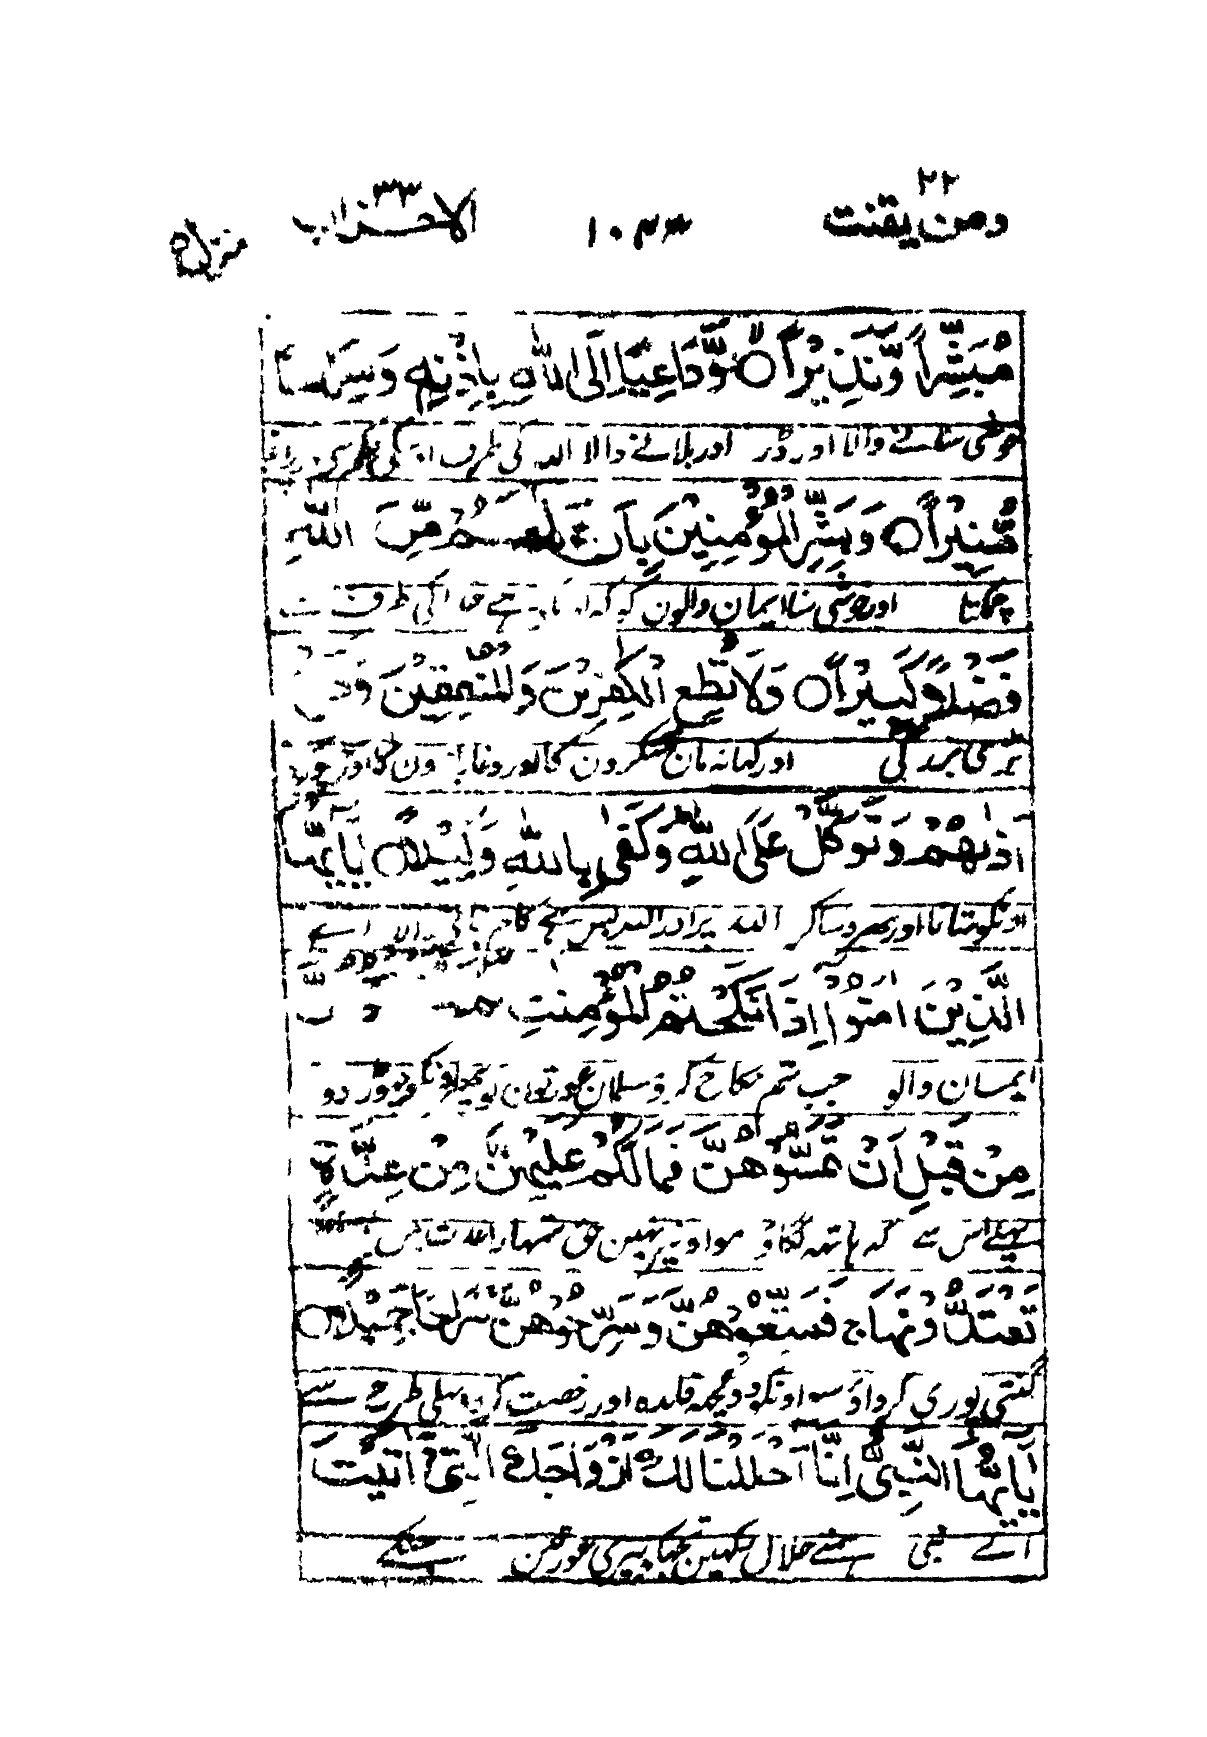 ومن یقنت ۲۲
۱۰۴۴
الاحزاب ۳۳
منزل ۵
مُبَشِّرًا وَّنَذِيْرًا ○ وَّدَاعِيًا اِلَى اللهِ بِاِذْنِهٖ وَسِرَاجًا
خوشی سنانے والا اور ڈر اور بلانے والا اللہ کی طرف
مُّنِيْرًا ○ وَبَشِّرِ الْمُؤْمِنِيْنَ بِاَنَّ لَهُمْ مِّنَ اللهِ
چمکتا اور خوشی سنا ایمان والوں کو کہ خدا کی طرف
فَضْلًا كَبِيْرًا ○ وَلَا تُطِعِ الْكٰفِرِيْنَ وَالْمُنٰفِقِيْنَ وَدَعْ
بڑی بزرگی اور کہا نہ مان منکرون کا اور دغابازون کا اور چھوڑ
اَذٰىهُمْ وَتَوَكَّلْ عَلَى اللهِ وَكَفٰى بِاللهِ وَكِيْلًا ○ يٰاَيُّهَا
اونکو ستانا اور بھروسا کر اللہ پر اور اللہ بس ہے کام اے
الَّذِيْنَ اٰمَنُوْا اِذَا نَكَحْتُمُ الْمُؤْمِنٰتِ
ایمان والو جب تم نکاح کرو مسلمان عورتون کو پھر اونکو چھوڑ دو
مِنْ قَبْلِ اَنْ تَمَسُّوْهُنَّ فَمَا لَكُمْ عَلَيْهِنَّ مِنْ عِدَّةٍ
پہلے اس سے کہ ہاتھ لگاؤ سو اونپر نہین حق تمہارا عدت
تَعْتَدُّوْنَهَا ج فَمَتِّعُوْهُنَّ وَسَرِّحُوْهُنَّ سَرَاحًا جَمِيْلًا ○
گنتی پوری کرواؤ سو اونکو دو کچھ فائدہ اور رخصت کرو بھلی طرح سے
يٰاَيُّهَا النَّبِىُّ اِنَّا اَحْلَلْنَا لَكَ اَزْوَاجَكَ الّٰتِىْ اٰتَيْتَ
اے نبی ہمنے حلال تیری عورتین جنکے